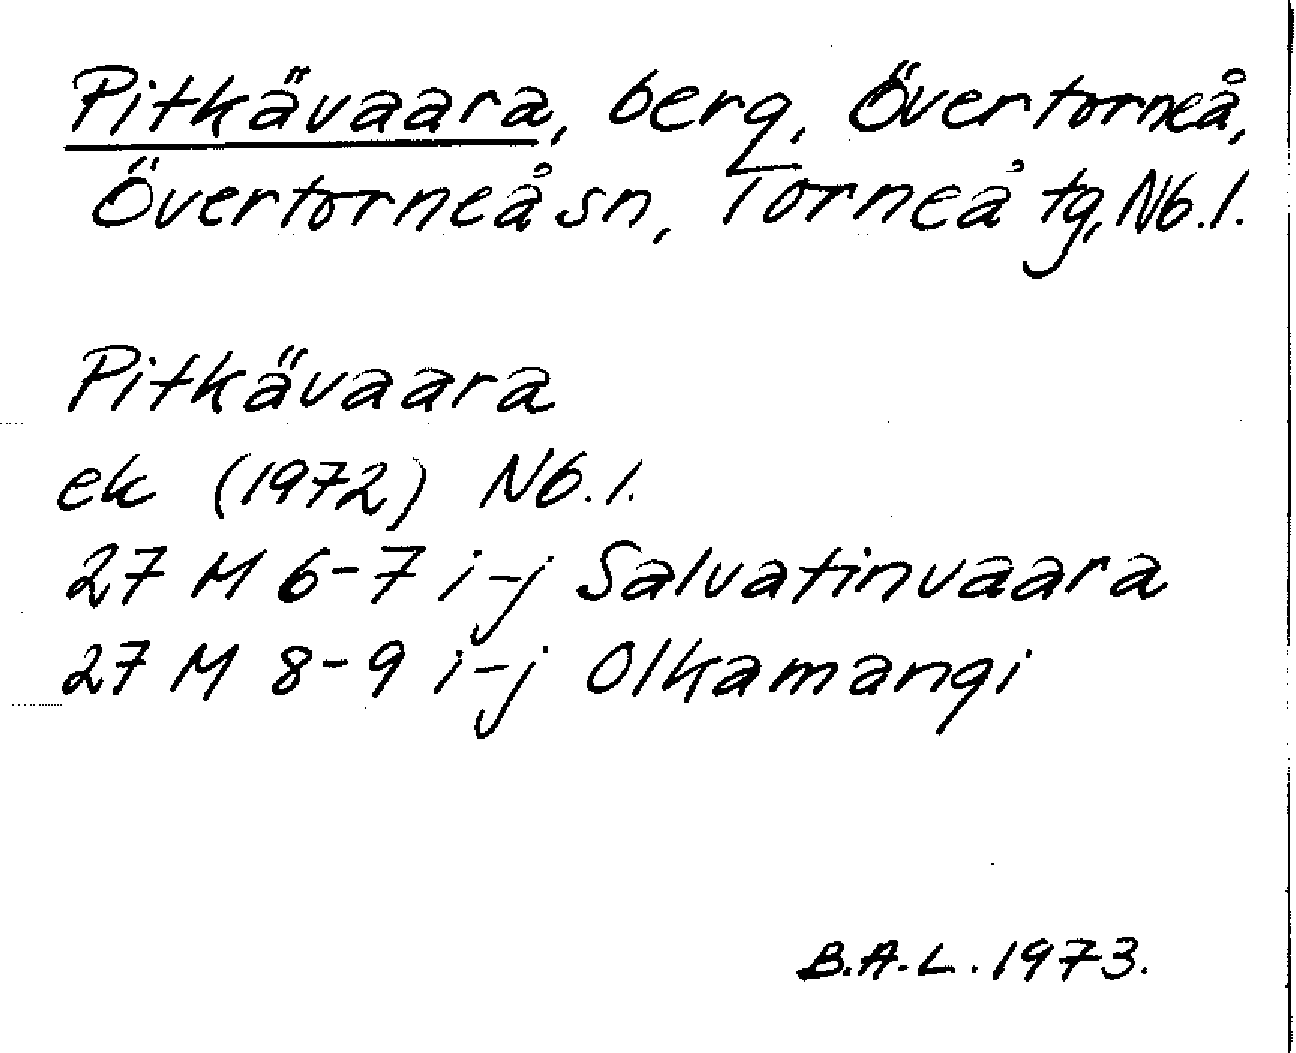 Pitkävaara, berg, Övertorneå,
Övertorneå sn, Torneå tg, Nb.l.
Pitkävaara
ek (1972) Nb.l.
27 M 6-7 i-j Salvatinvaara
27 M 8-9 i-j Olkamangi
B.A.L. 1973.